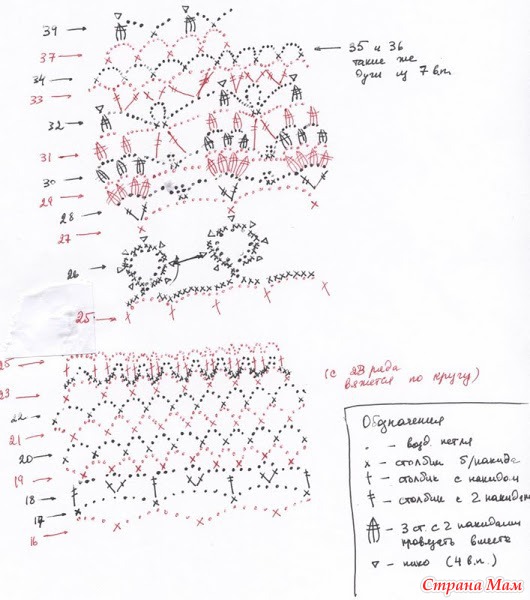 39 →
37 →
34 →
33 →
35 и 36
такие же
дуги из 7 в.п.
32 →
31 →
30 →
29 →
28 →
27 →
26 →
25 →
25 →
23 →
22 →
21 →
20 →
19 →
18 →
17 →
16 →
(с 23 ряда
вяжется по кругу)
Обозначения
· - возд. петля
x - столбик б/накида
† - столбик с накидом
‡ - столбик с 2 накидами
- 3 ст. с 2 накидами
провязать вместе
▽ - пико (4 в.п.)
Страна Мам